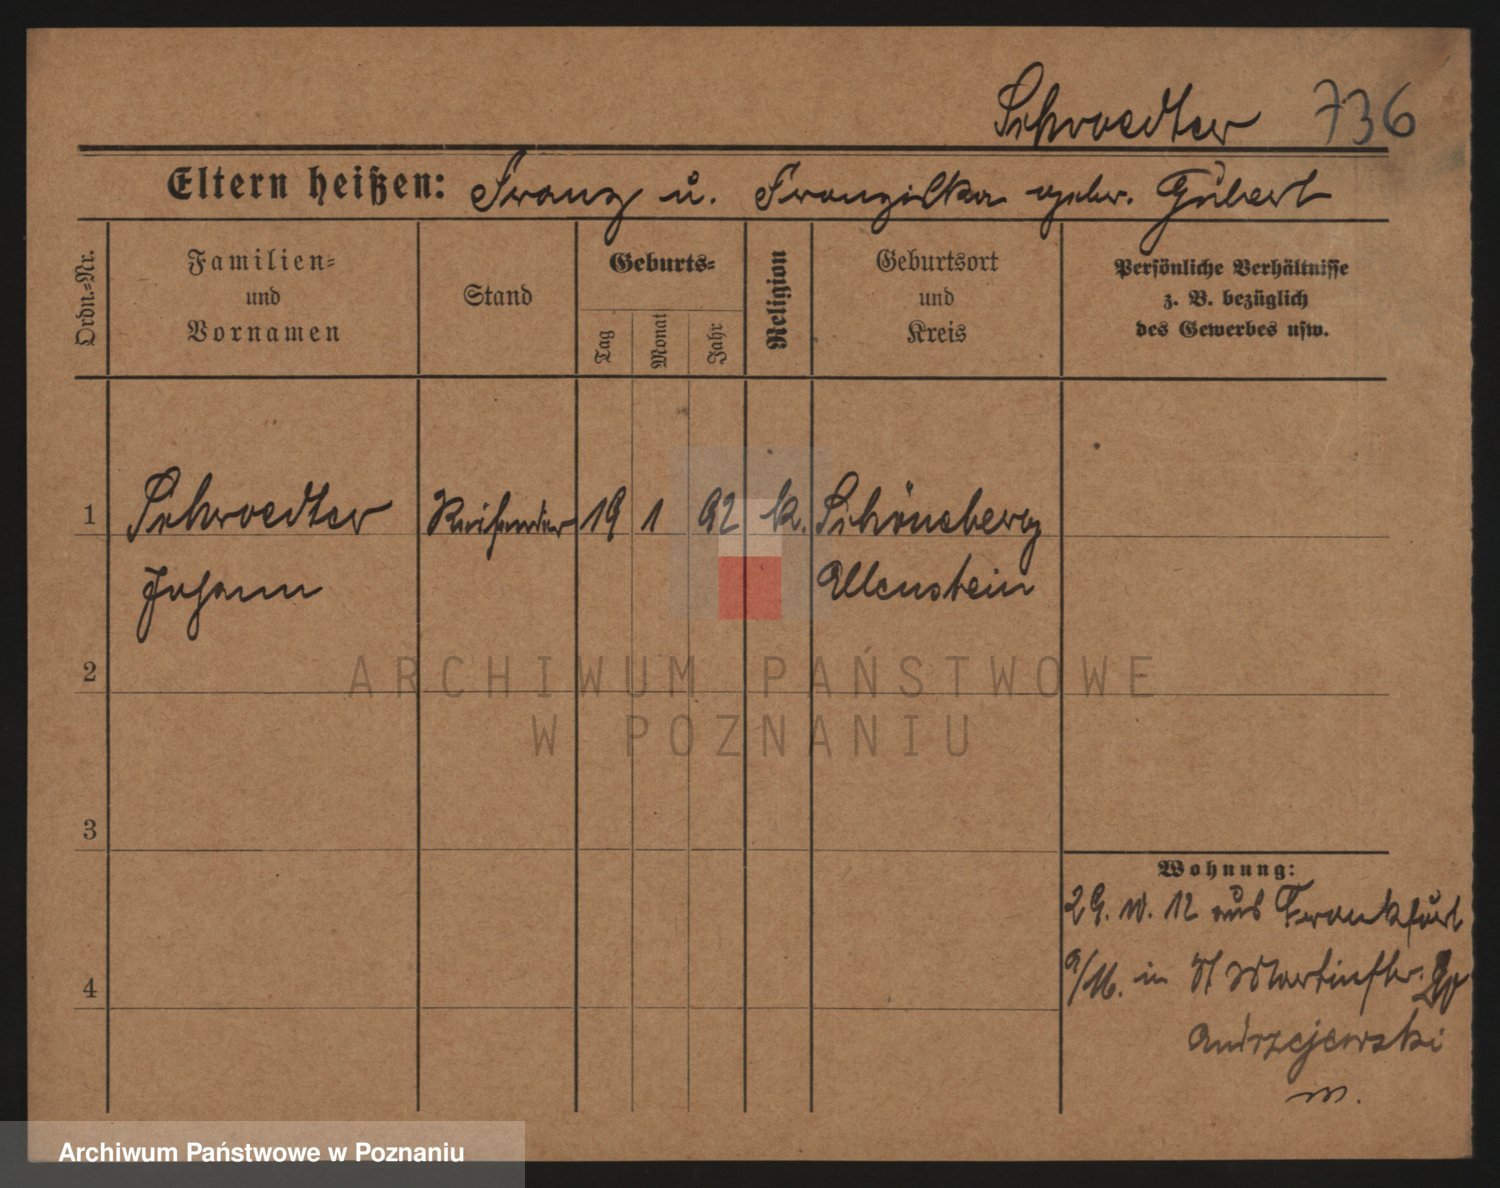 Schroedter 736
Eltern heißen: Franz u. Franziska gebr. Gübert
Ordn.-Nr.
Familien-
und
Vornamen
Stand
Geburts-
Tag
Monat
Jahr
Religion
Geburtsort
und
Kreis
Persönliche Verhältnisse
z. B. bezüglich
des Gewerbes usw.
1 Schroedter Reisender 19 1 92 k. Schöneberg
Johann Allenstein
2
ARCHIWUM PAŃSTWOWE
W POZNANIU
3
Wohnung:
29. 10. 12 aus Frankfurt
a/M. in St Martinstr.
4
Andrzejewski
m.
Archiwum Państwowe w Poznaniu